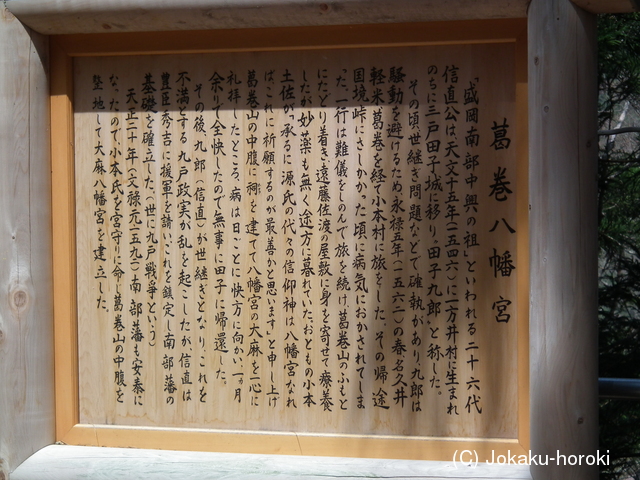 葛巻八幡宮
「盛岡南部中興の祖」といわれる二十六代
信直公は、天文十五年(一五四六)に一方井村に生まれ
のちに三戸田子城に移り、田子九郎、と称した。
その頃世継ぎ問題などで確執があり、九郎は
騒動を避けるため、永禄五年(一五六二)の春、名久井
軽米、葛巻を経て小本村に旅をした。その帰途
国境峠にさしかかった頃に病気におかされてしま
った。一行は難儀をしのんで旅を続け、葛巻山のふもと
にたどり着き、遠藤佐渡の屋敷に身を寄せて療養
したが妙薬も無く途方に暮れていた。おともの小本
土佐が、「承るに源氏の代々の信仰神は八幡宮なれ
ば、これに祈願するのが最善かと思います」と申し上げ
葛巻山の中腹に祠を建てて八幡宮の大麻を一心に
礼拝したところ、病は日ごとに快方に向かい、一ヵ月
余りで全快したので無事に田子に帰還した。
その後、九郎(信直)が世継ぎとなり、これを
不満とする九戸政実が乱を起こしたが、信直は
豊臣秀吉に援軍を請い、これを鎮定し南部藩の
基礎を確立した。(世に九戸戦争という)
天正二十年(文禄元・一五九二)南部藩も安泰に
なったので、小本氏を宮守りに命じ葛巻山の中腹を
整地して大麻八幡宮を建立した。
(C) Jokaku-horoki